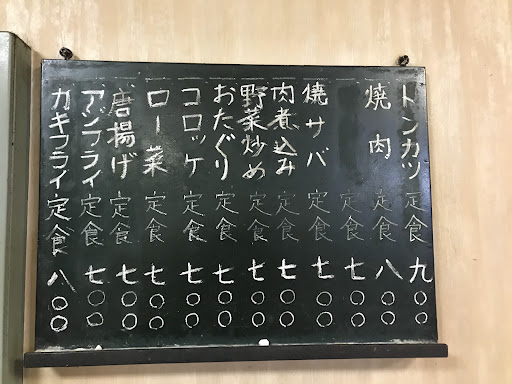 トンカツ定食九〇〇
焼肉定食八〇〇
定食七〇〇
焼サバ定食七〇〇
肉煮込み定食七〇〇
野菜炒め定食七〇〇
おたぐり定食七〇〇
コロッケ定食七〇〇
ロー菜定食七〇〇
唐揚げ定食七〇〇
アジフライ定食七〇〇
カキフライ定食八〇〇